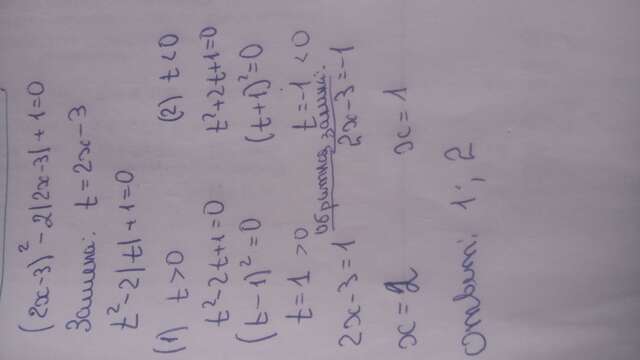 (2x-3)² - 2|2x-3| + 1 = 0
Замена: t = 2x-3
t² - 2|t| + 1 = 0
(1) t > 0 (2) t < 0
t² - 2t + 1 = 0 t² + 2t + 1 = 0
(t-1)² = 0 (t+1)² = 0
t = 1 > 0 t = -1 < 0
Обратная замена:
2x-3 = 1 2x-3 = -1
x = 2 x = 1
Ответ: 1; 2